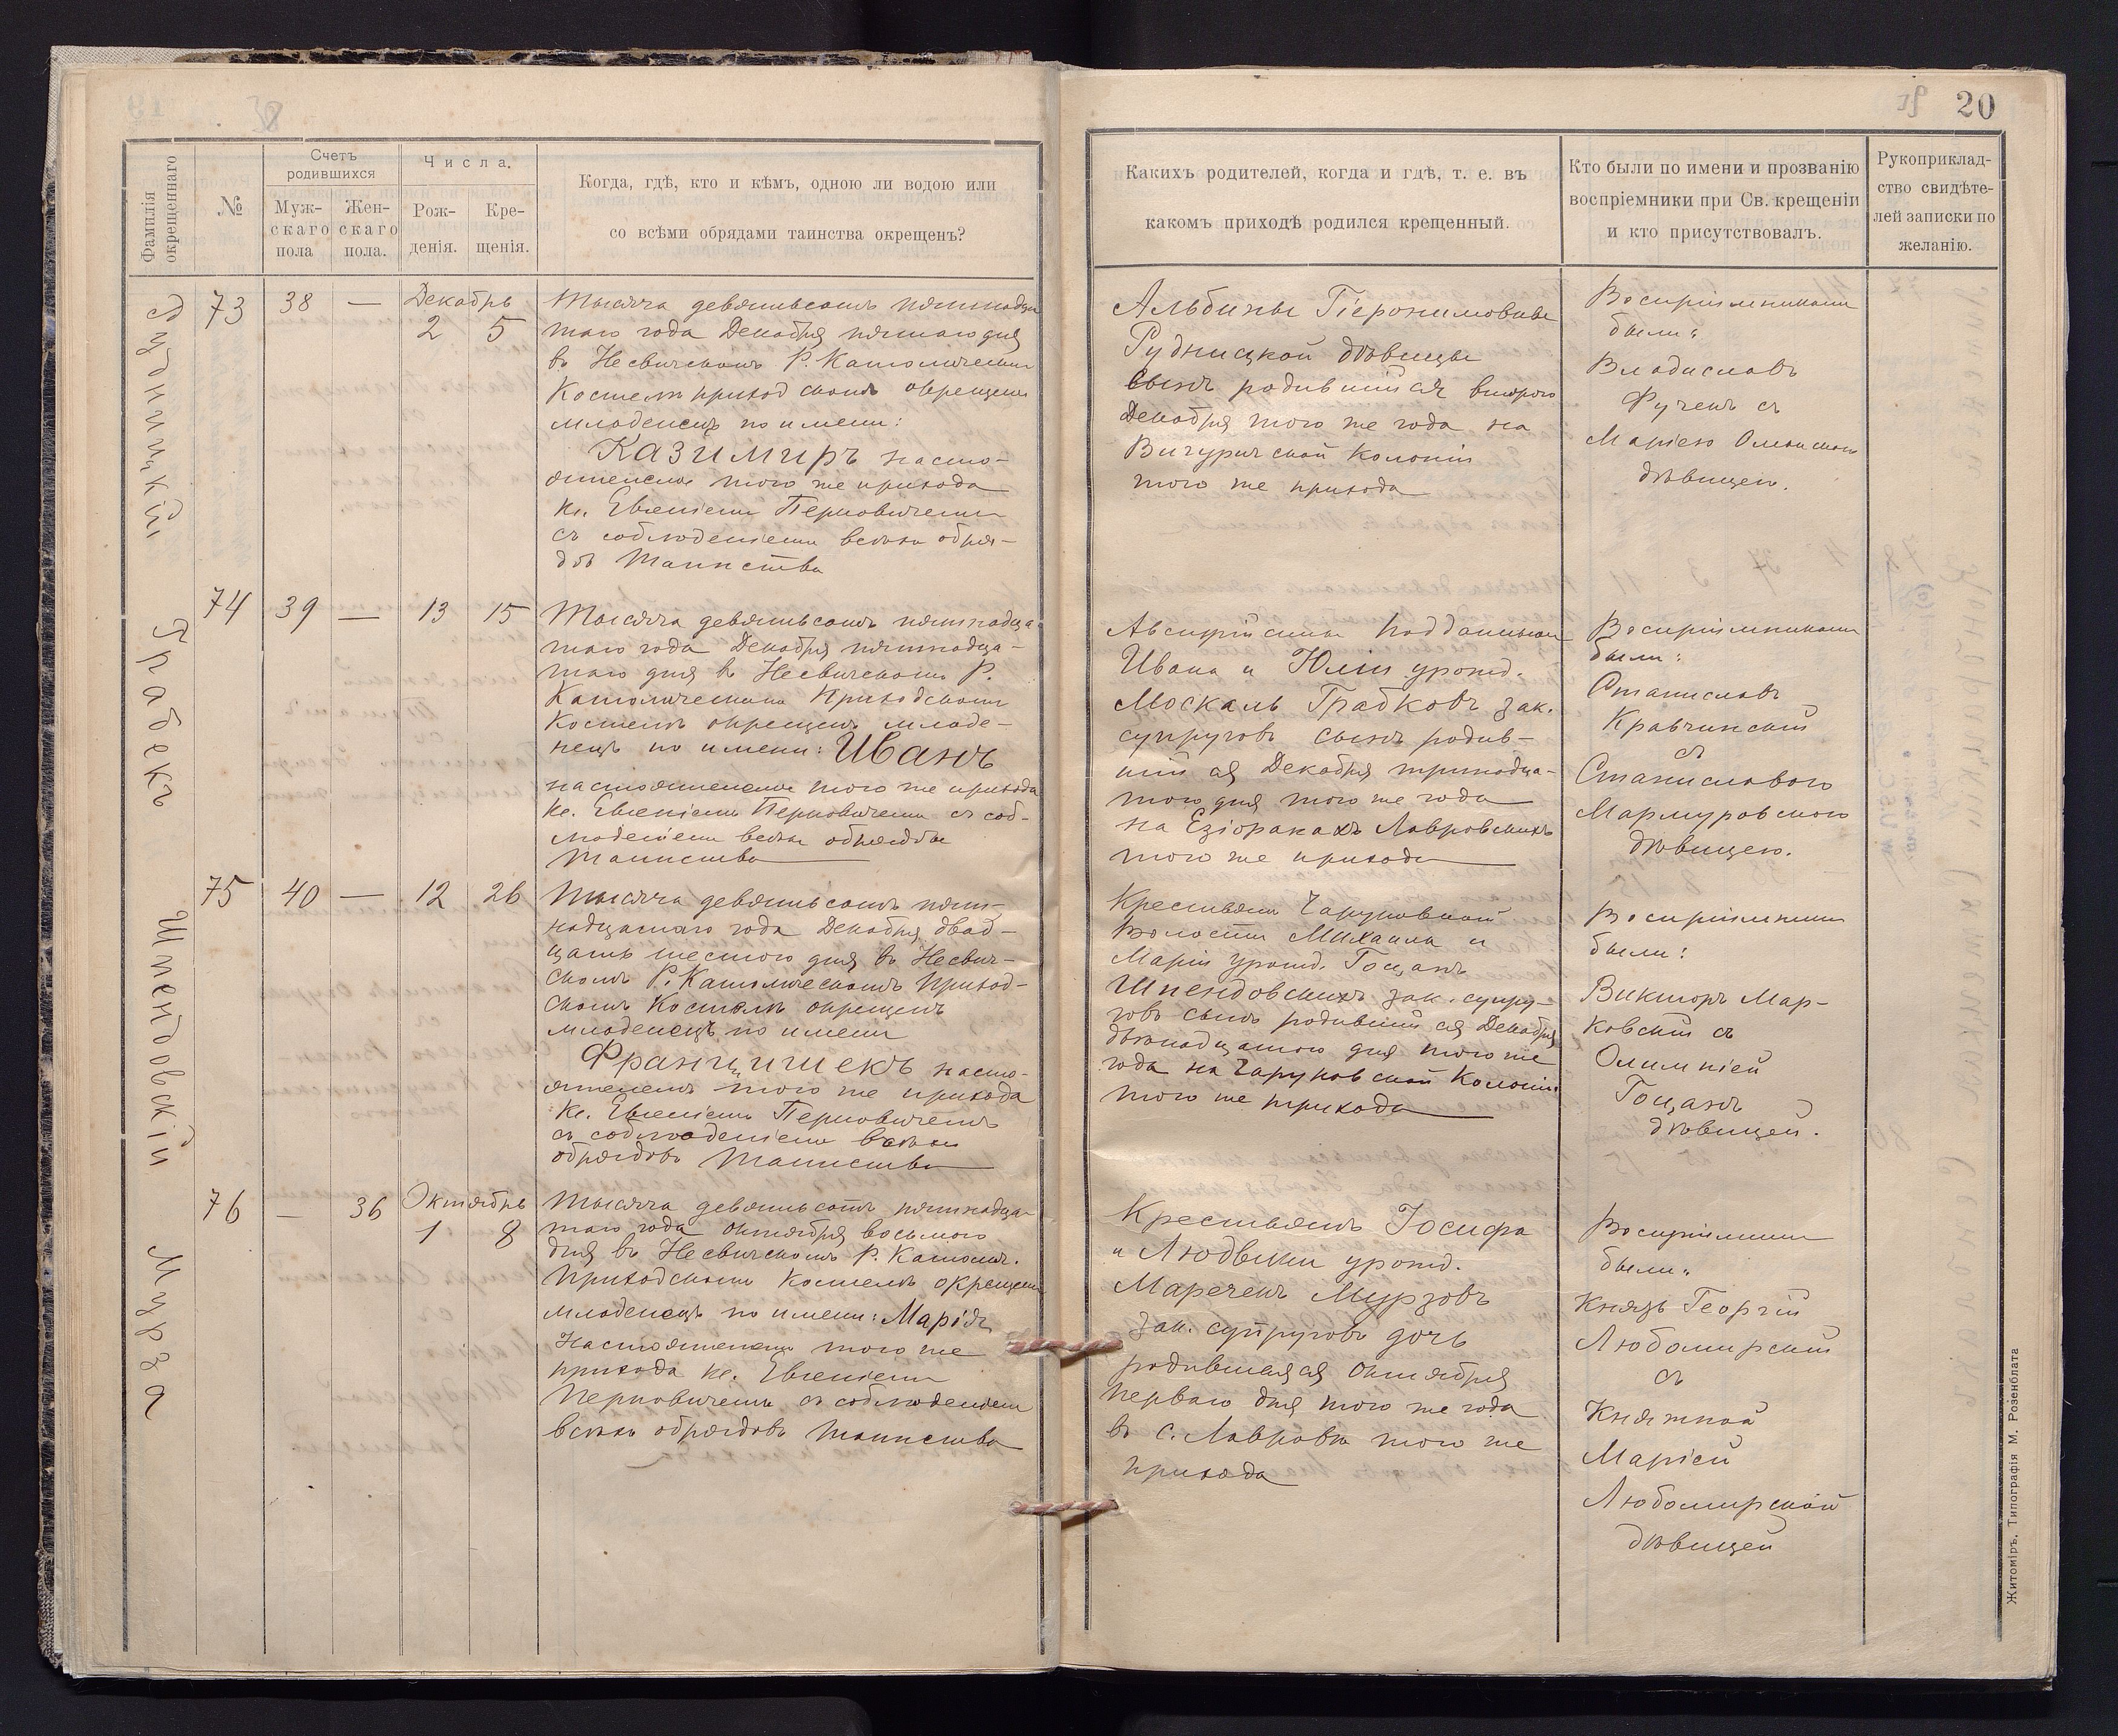 20
Фамилія окрещеннаго
№
Счетъ родившихся
Муж-скаго пола
Жен-скаго пола.
Числа.
Рож-денія.
Кре-щенія.
Когда, гдѣ, кто и кѣмъ, одною ли водою или
со всѣми обрядами таинства окрещенъ?
Какихъ родителей, когда и гдѣ, т. е. въ
какомъ приходѣ родился крещенный.
Кто были по имени и прозванію
воспріемники при Св. крещеніи
и кто присутствовалъ.
Рукоприклад-
ство свидѣте-
лей записки по
желанію.
Рудницкій
73 38 — Декабрь
2 5
Тысяча девятьсотъ пятнадца
таго года Декабря пятаго дня
въ Несвичскомъ Р. Католическомъ
Костелѣ приходскомъ окрещенъ
младенецъ по имени:
Казимиръ насто-
ятелемъ того же прихода
кс. Евгеніемъ Перновичемъ
съ соблюденіемъ всѣхъ обря-
довъ Таинства
Альбины Гіеронимовны
Рудницкой дѣвицы
сынъ родившійся второго
Декабря того же года на
Вигуричской Колоніи
того же прихода
Воспріемниками
были:
Владиславъ
съ
Маріею
дѣвицею.
Грабекъ
74 39 — 13 15
Тысяча девятьсотъ пятнадца
таго года Декабря пятнадца-
таго дня въ Несвичскомъ Р.
Католическомъ Приходскомъ
Костелѣ окрещенъ младе-
нецъ по имени: Иванъ
настоятелемъ того же прихода
кс. Евгеніемъ Перновичемъ съ соб-
люденіемъ всѣхъ обрядовъ
Таинства
Австрійскихъ Подданныхъ
Ивана и Юліи урожд.
Москаль Грабковъ зак.
супруговъ сынъ родив-
шійся Декабря тринадца-
таго дня того же года
на Езіоракахъ Лавровскихъ
того же прихода
Воспріемниками
были:
Станиславъ
Кравчинскій
съ
Станиславою
Мармуровскою
дѣвицею.
Шпендовскій
75 40 — 12 26
Тысяча девятьсотъ пят-
надцатаго года Декабря двад-
цать шестого дня въ Несвич-
скомъ Р. Католическомъ Приход-
скомъ Костелѣ окрещенъ
младенецъ по имени
Францишекъ насто-
ятелемъ того же прихода
кс. Евгеніемъ Перновичемъ
съ соблюденіемъ всѣхъ
обрядовъ Таинства
Крестьянъ Чаруковской
Волости Михаила и
Маріи урожд. Гоцанъ
Шпендовскихъ зак. супру-
говъ сынъ родившійся Декабря
двѣнадцатаго дня того же
года на Чаруковской Колоніи
того же прихода
Воспріемниками
были:
Викторъ Мар-
ковскій съ
Олимпіей
Гоцанъ
дѣвицей.
Мурза
76 — 36 Октябрь
1 8
Тысяча девятьсотъ пятнадца
таго года октября восьмого
дня въ Несвичскомъ Р. Католич.
Приходскомъ Костелѣ окрещенъ
младенецъ по имени: Марія
Настоятелемъ того же
прихода кс. Евгеніемъ
Перновичемъ съ соблюденіемъ
всѣхъ обрядовъ Таинства
Крестьянъ Іосифа
и Людвики урожд.
Мареченъ Мурзовъ
зак. супруговъ дочь
родившаяся октября
перваго дня того же года
въ с. Лавровъ того же
прихода
Воспріемники
были:
Князь Георгій
Любомирскій
съ
Княжной
Маріей
Любомирской
дѣвицей
Житоміръ, Типографія М. Розенблата